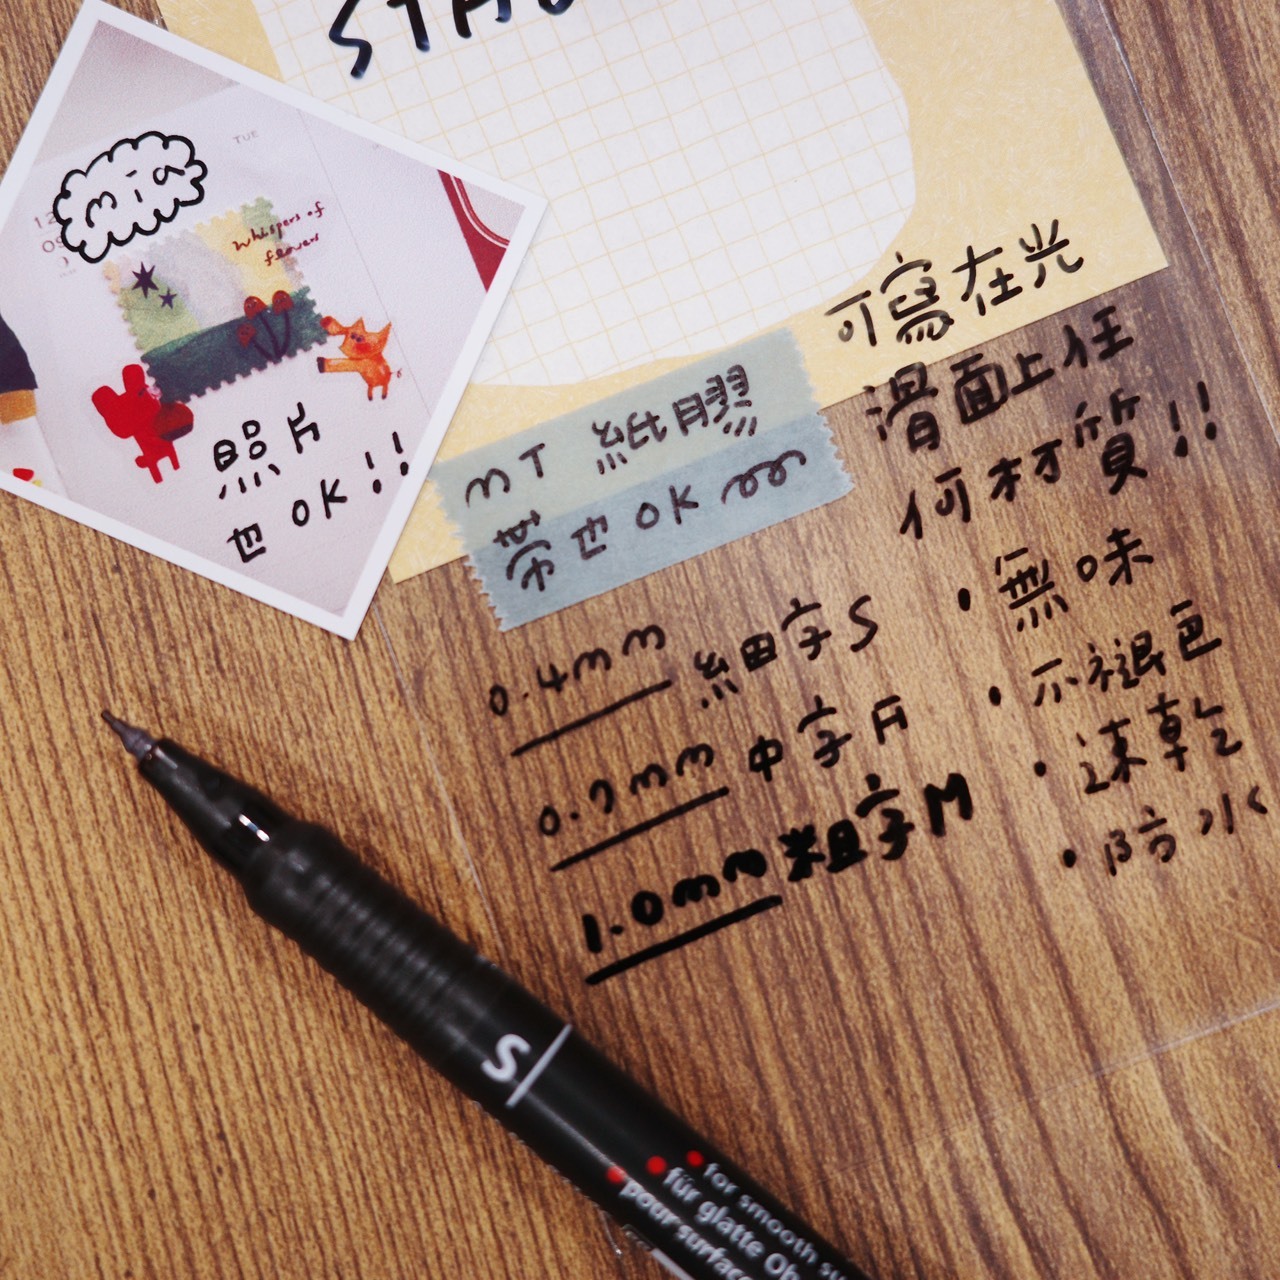 TUE
mia
whispers of
flowers
照片
也OK!!
MT 紙膠
帶也OK
可寫在光
滑面上任
何材質!!
・無味
・不褪色
・速乾
・防水
0.4mm 細字S
0.7mm 中字F
1.0mm 粗字M
S
for smooth
für glatte
pour